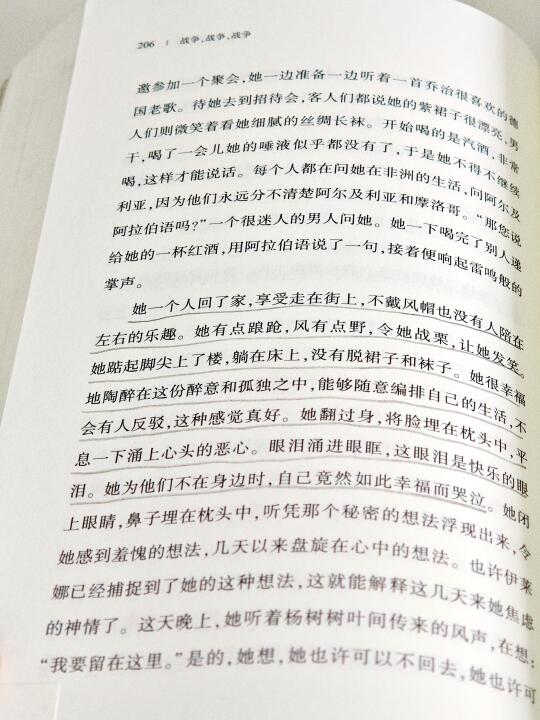 206 | 战争,战争,战争
邀参加一个聚会,她一边准备一边听着一首乔治很喜欢的德
国老歌。待她去到招待会,客人们都说她的紫裙子很漂亮,男
人们则微笑着看她细腻的丝绸长袜。开始喝的是汽酒,非常
干,喝了一会儿她的唾液似乎都没有了,于是她不得不继续
喝,这样才能说话。每个人都在问她在非洲的生活,问阿尔及
利亚,因为他们永远分不清楚阿尔及利亚和摩洛哥。“那您说
阿拉伯语吗?”一个很迷人的男人问她。她一下喝完了别人递
给她的一杯红酒,用阿拉伯语说了一句,接着便响起雷鸣般的
掌声。
她一个人回了家,享受走在街上,不戴风帽也没有人陪在
左右的乐趣。她有点踉跄,风有点野,令她战栗,让她发笑。
她踮起脚尖上了楼,躺在床上,没有脱裙子和袜子。她很幸福
地陶醉在这份醉意和孤独之中,能够随意编排自己的生活,不
会有人反驳,这种感觉真好。她翻过身,将脸埋在枕头中,平
息一下涌上心头的恶心。眼泪涌进眼眶,这眼泪是快乐的眼
泪。她为他们不在身边时,自己竟然如此幸福而哭泣。她闭
上眼睛,鼻子埋在枕头中,听凭那个秘密的想法浮现出来,令
她感到羞愧的想法,几天以来盘旋在心中的想法。也许伊莱
娜已经捕捉到了她的这种想法,这就能解释这几天来她焦虑
的神情了。这天晚上,她听着杨树树叶间传来的风声,在想:
“我要留在这里。”是的,她想,她也许可以不回去,她也许可